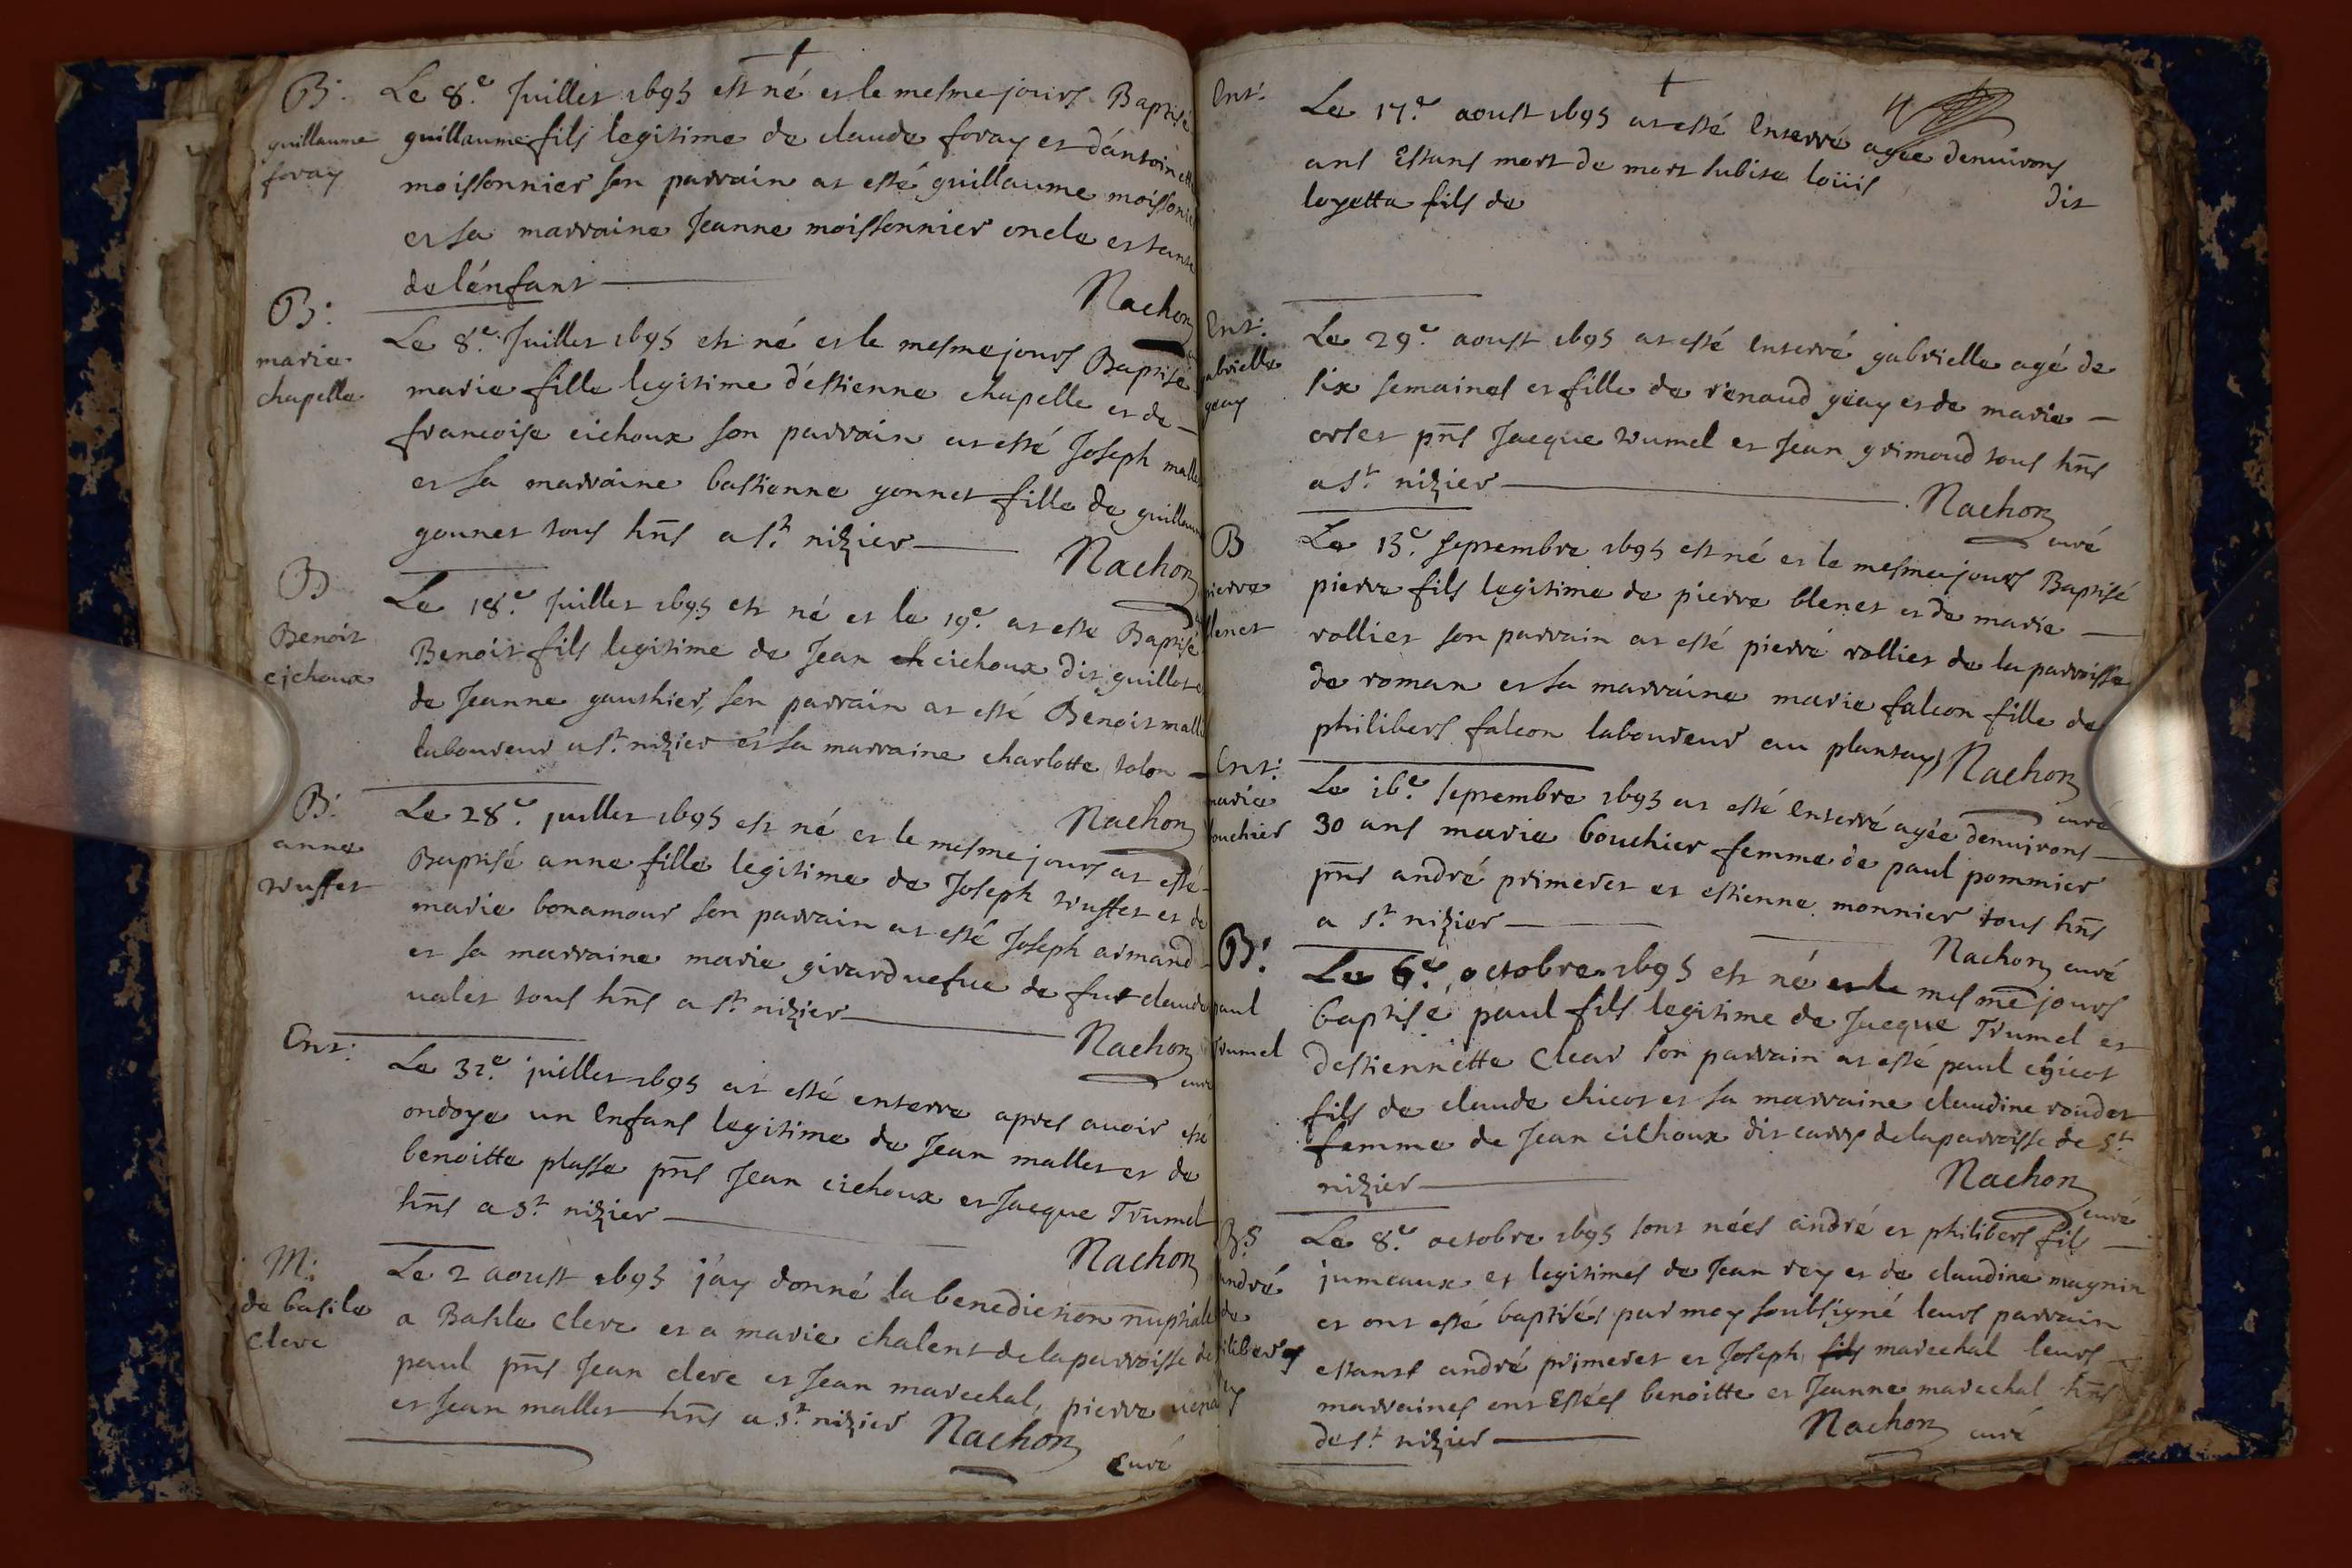 B:
guillaume
foray
Le 8.e Juillet 1695 est né et le mesme jours Baptisé
guillaume fils legitime de claude foray et d'antoinette
moissonnier son parrain at esté guillaume moissonnier
et sa marraine Jeanne moissonnier oncle et tante
de l'énfant
Nachon
B:
marie
chapelle
Le 8.e Juillet 1695 est né et le mesme jours Baptisé
marie fille legitime d'estienne chapelle et de
francoise cichoux son parrain at esté Joseph mallet
et sa marraine bastienne gonnet fille de guillaume
gonnet tous hñs a st nizier
Nachon
B
Benoit
cichoux
Le 18.e Juillet 1695 est né et le 19.e at este Baptisé
Benoit fils legitime de Jean cichoux dit guillot et
de Jeanne gauthier, son parrain at esté Benoit mallet
laboureur a st nizier et sa marraine charlotte tolon
Nachon
B:
anne
truffet
Le 28.e juillet 1695 est né et le mesme jours at esté
Baptisé anne fille legitime de Joseph truffet et de
marie bonamour son parrain at esté Joseph armand
et sa marraine marie girard uefue de fut claude
ualet tous hñs a st nizier
Nachon
curé
Ent:
Le 31.e juillet 1695 at esté enterre apres auoir esté
ondoye un Enfant legitime de Jean mallet et de
benoitte plasse pñs Jean cichoux et Jacque Trumel
hñs a st nizier
Nachon
M:
de basile
clerc
Le 2 aoust 1695 j'ay donné la benediction nuptiale
a Basile clerc et a marie chalent de la parroisse de
paul pñs Jean clerc et Jean marechal, pierre
et Jean mallet hñs a st nizier Nachon
curé
Ent:
Le 17.e aoust 1695 at esté Enterré agée denuirons
ans Estant mort de mort subite loüis dit
loyette fils de
Ent:
gabrielle
geay
Le 29.e aoust 1695 at esté Enterré gabrielle agé de
six semaines et fille de renaud geay et de marie
ortet pñs Jacque trumel et Jean grimoud tous hñs
a st nizier
Nachon
curé
B
pierre
blenet
Le 13.e septembre 1695 est né et le mesme jours Baptisé
pierre fils legitime de pierre blenet et de marie
rollier son parrain at esté pierre rollier de la parroisse
de roman et sa marraine marie falcon fille de
philibert falcon laboureur au plantay Nachon
curé
Ent:
marie
bouchier
Le 16.e septembre 1695 at esté Enterré agée denuirons
30 ans marie bouchier femme de paul pommier
pñs andré primeret et estienne monnier tous hñs
a st nizier
Nachon curé
B:
paul
trumel
Le 6.e octobre 1695 est né et le mesme jours
baptise paul fils legitime de Jacque Trumel et
destiennette Clear son parrain at esté paul chicot
fils de claude chicot et sa marraine claudine roudet
femme de Jean cichoux dit carry de la parroisse de st
nizier
Nachon
curé
B.s
andré
de
philibert
rey
Le 8.e octobre 1695 sont nées andré et philibert fils
jumeaux et legitimes de Jean rey et de claudine magnin
et ont esté baptisés par moy soubsigné leurs parrain
estants andré primeret et Joseph fils marechal leurs
marraines ont Estées benoitte et Jeanne marechal hñs
de st nizier
Nachon curé